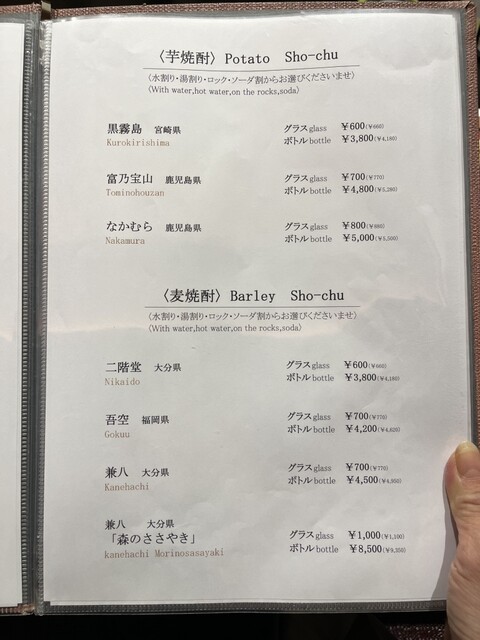 〈芋焼酎〉 Potato Sho-chu
〈水割り・湯割り・ロック・ソーダ割からお選びくださいませ〉
〈With water,hot water,on the rocks,soda〉
黒霧島 宮崎県 グラス glass ￥600(￥660)
Kurokirishima ボトル bottle ￥3,800(￥4,180)
富乃宝山 鹿児島県 グラス glass ￥700(￥770)
Tominohouzan ボトル bottle ￥4,800(￥5,280)
なかむら 鹿児島県 グラス glass ￥800(￥880)
Nakamura ボトル bottle ￥5,000(￥5,500)
〈麦焼酎〉 Barley Sho-chu
〈水割り・湯割り・ロック・ソーダ割からお選びくださいませ〉
〈With water,hot water,on the rocks,soda〉
二階堂 大分県 グラス glass ￥600(￥660)
Nikaido ボトル bottle ￥3,800(￥4,180)
吾空 福岡県 グラス glass ￥700(￥770)
Gokuu ボトル bottle ￥4,200(￥4,620)
兼八 大分県 グラス glass ￥700(￥770)
Kanehachi ボトル bottle ￥4,500(￥4,950)
兼八 大分県
「森のささやき」 グラス glass ￥1,000(￥1,100)
kanehachi Morinosasayaki ボトル bottle ￥8,500(￥9,350)